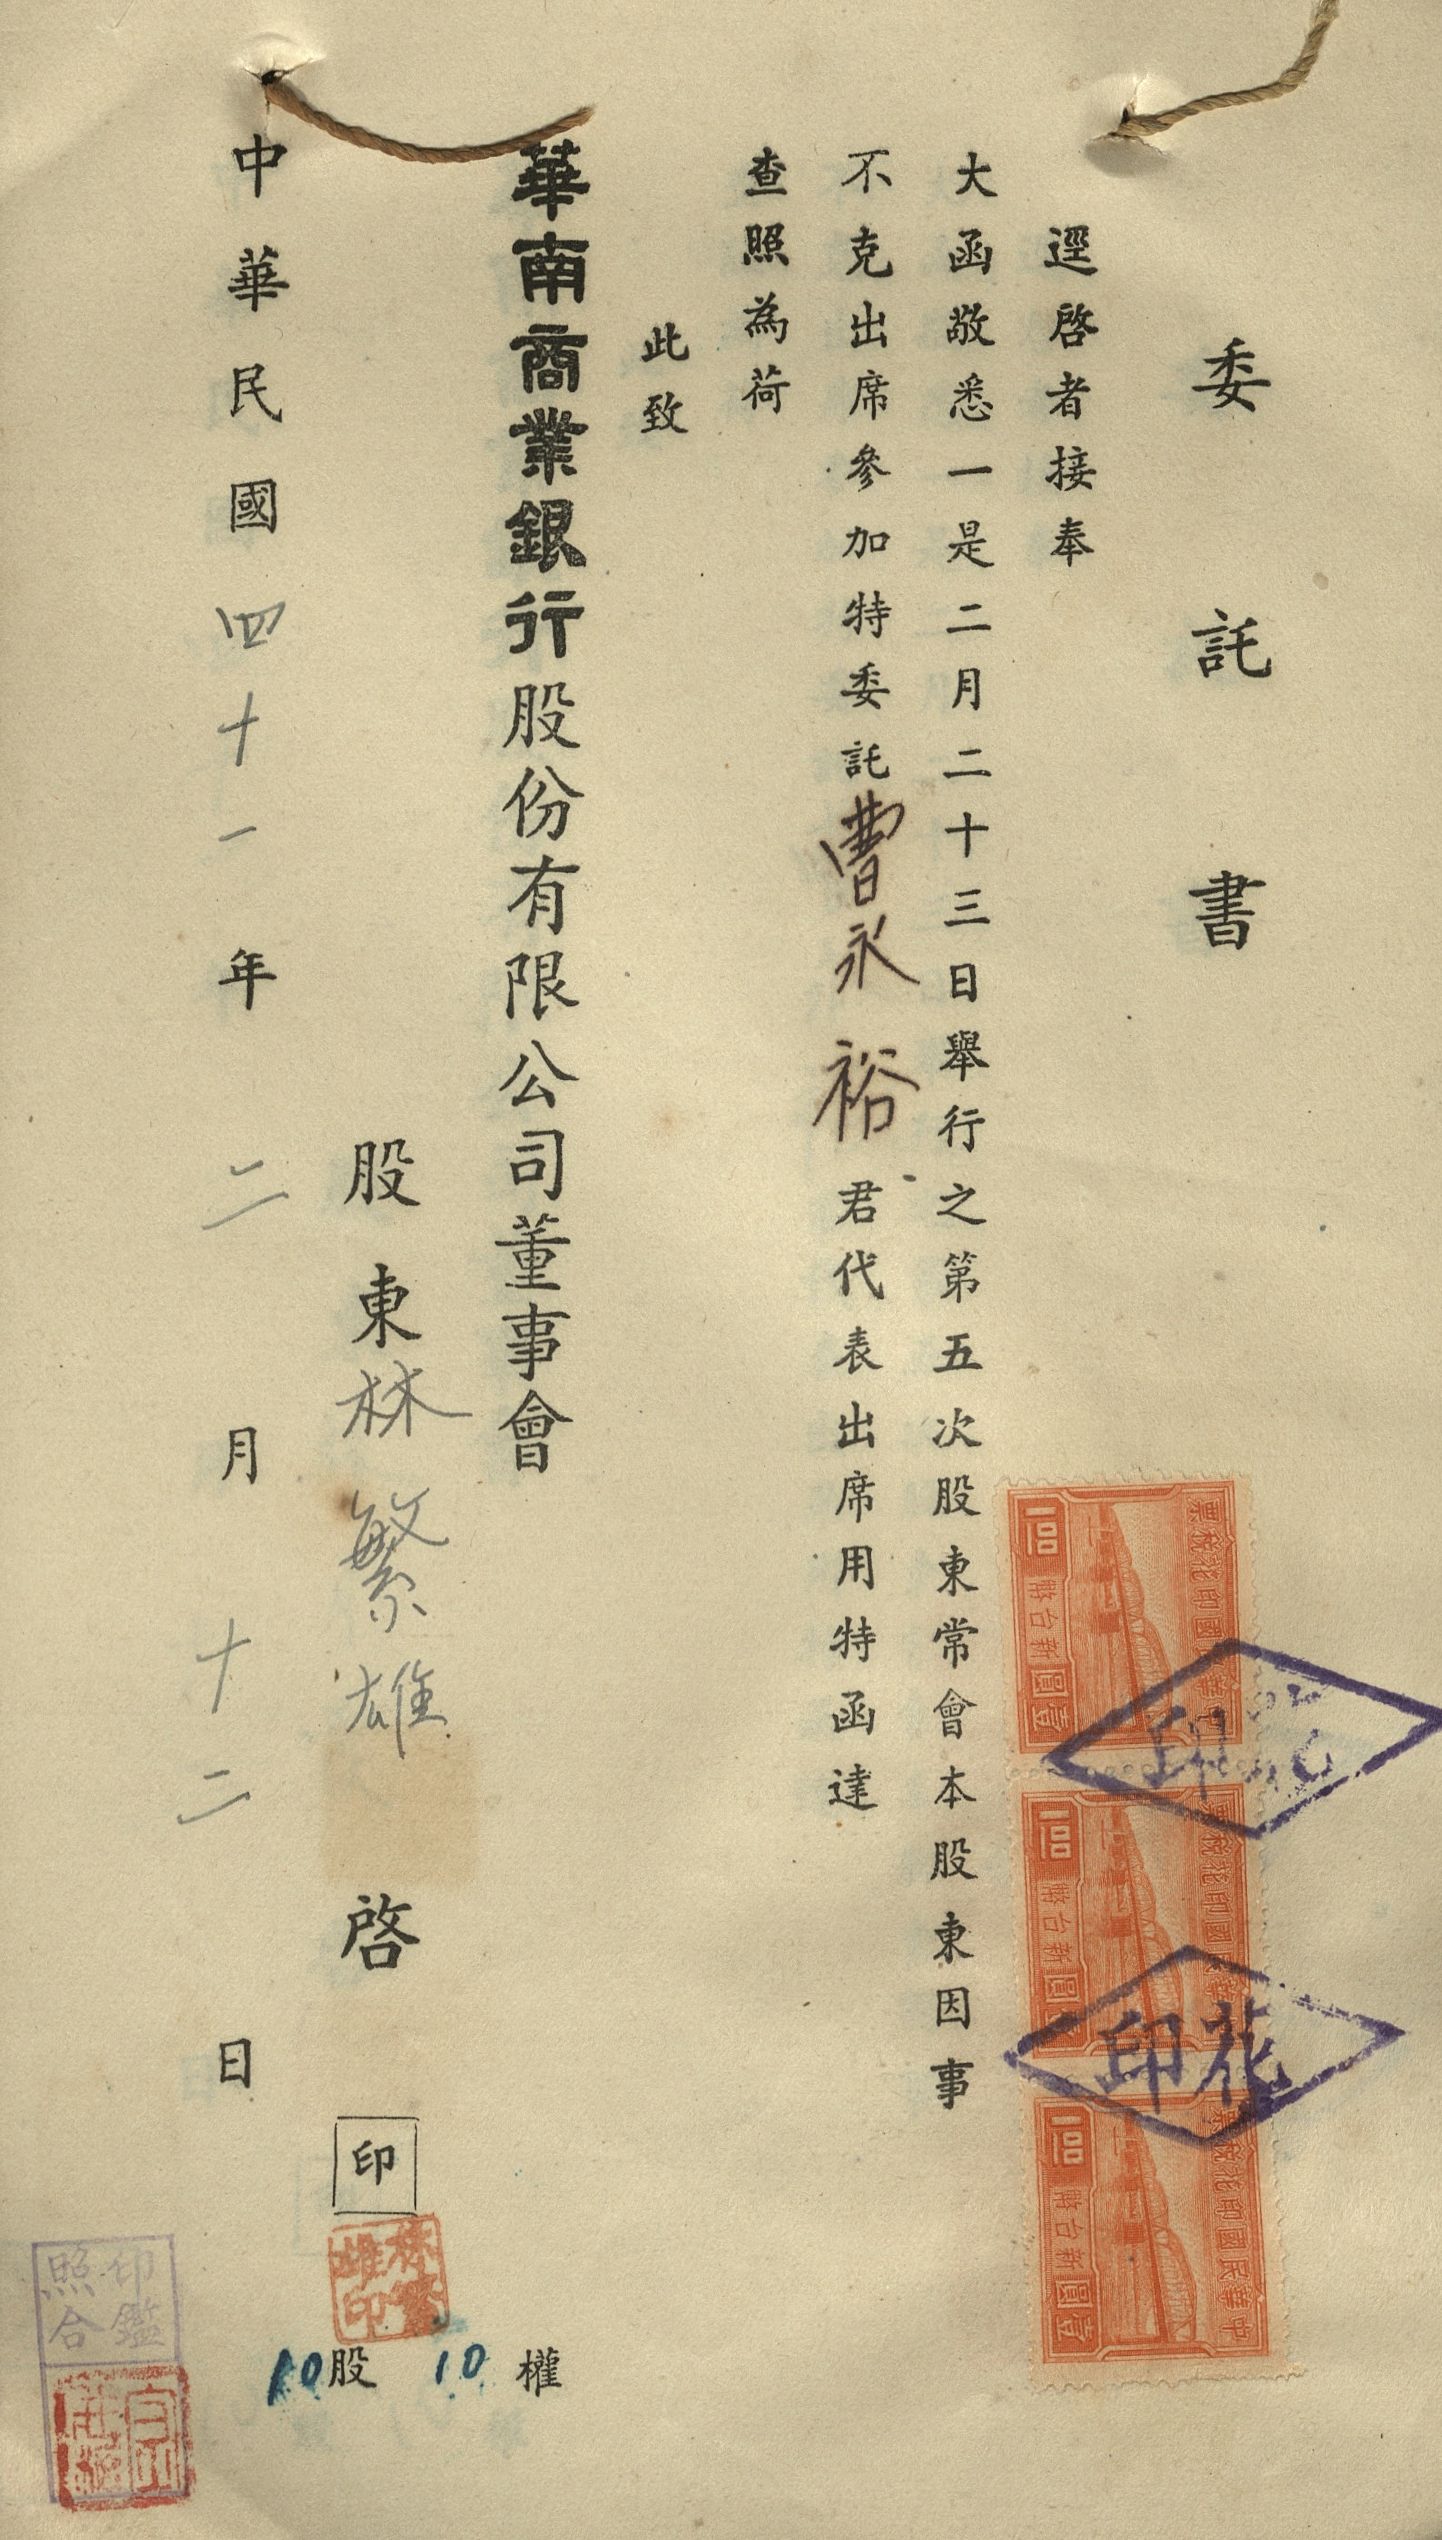 委託書
逕啓者接奉
大函敬悉一是二月二十三日舉行之第五次股東常會本股東因事
不克出席參加特委託曹永裕君代表出席用特函達
查照為荷
此致
華南商業銀行股份有限公司董事會
股東林繁雄啓印
中華民國四十一年二月十二日
權10
股10
林繁雄印
印鑑照合
中華民國印花稅票
1.00
新台幣
壹圓
中華民國印花稅票
1.00
新台幣
壹圓
中華民國印花稅票
1.00
新台幣
壹圓
印花
印花